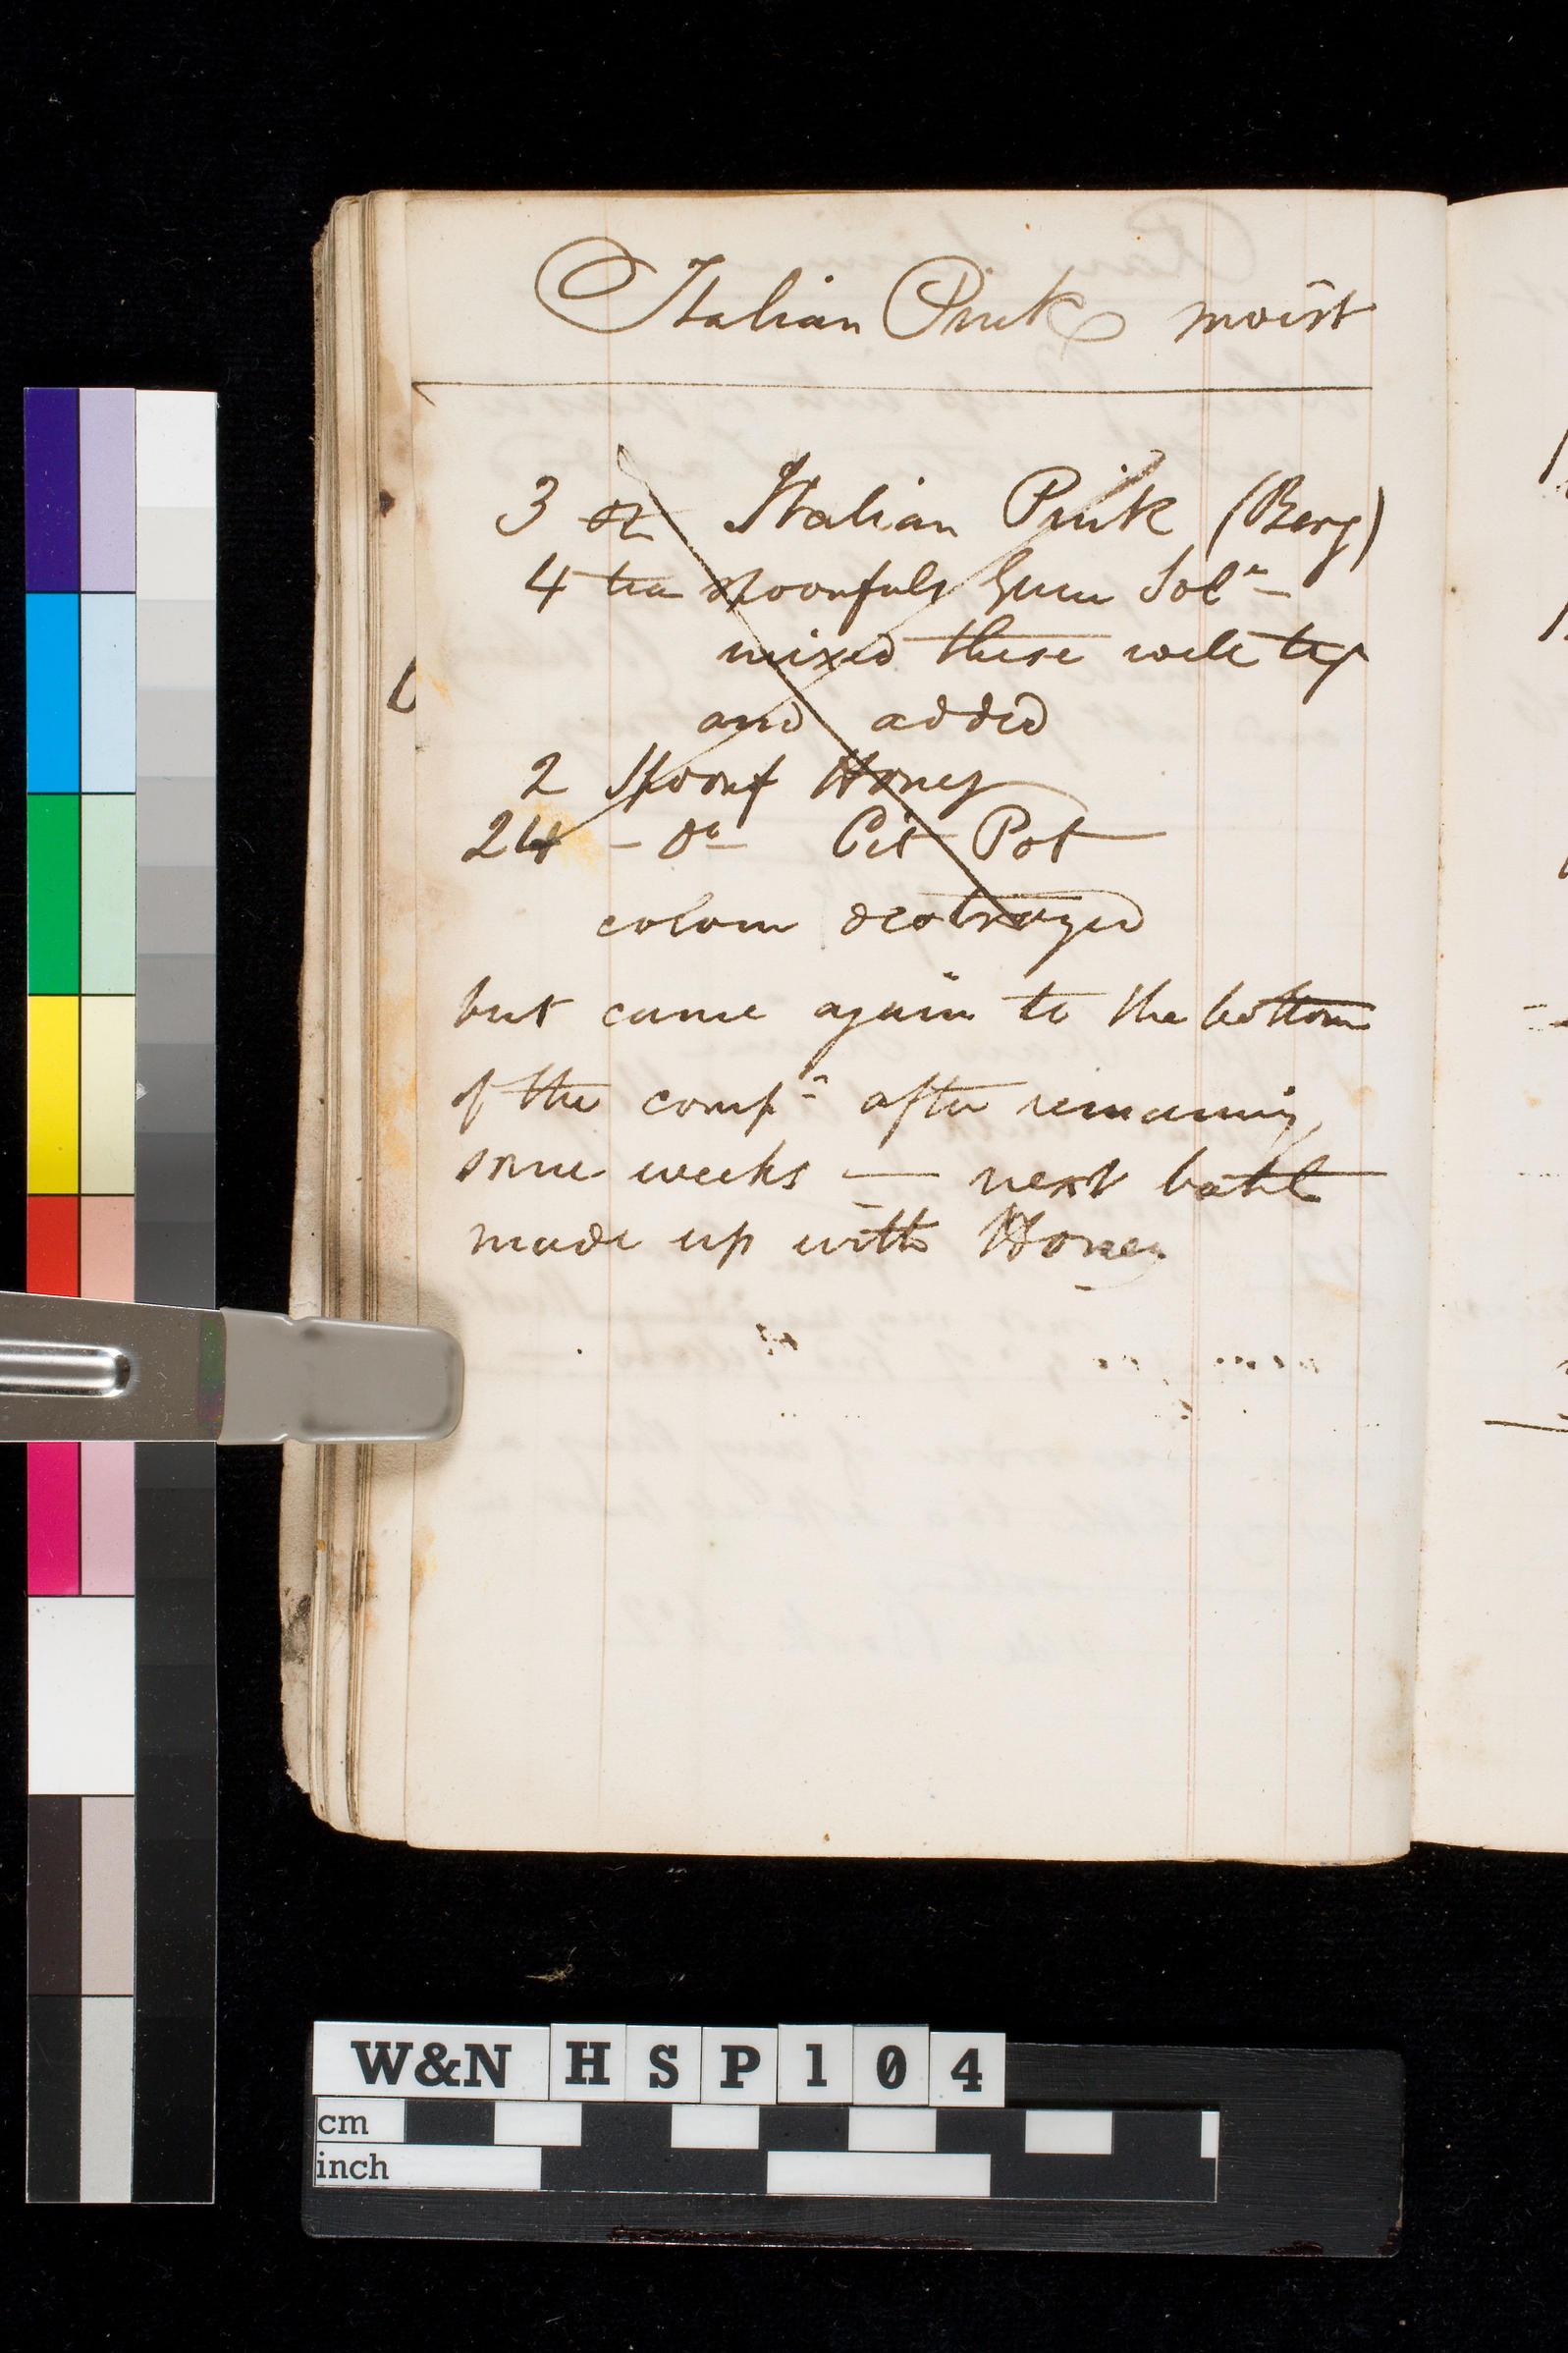 Italian Pink moist
3 oz Italian Pink (Berg)
4 tea spoonfuls Gum Solⁿ
mixed these well tog
and added
2 Spoonf Honey
24 - do - Cit Pot
colour destroyed
but came again to the bottom
of the compⁿ after remaining
some weeks — next
made up with Honey
W&N HSP104
cm
inch